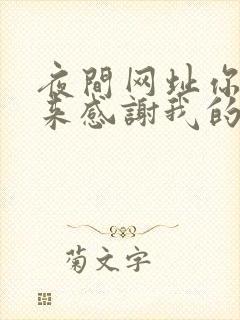 夜間网址你
来感謝我的
菊文字